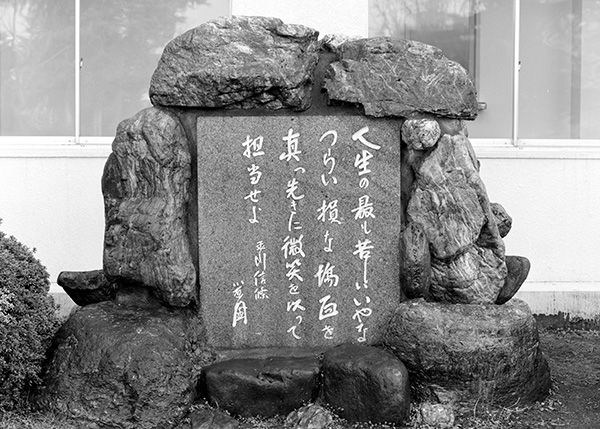 人生の最も苦しいいやな
つらい損な場面を
真っ先きに微笑を以って
担当せよ
玉川信條